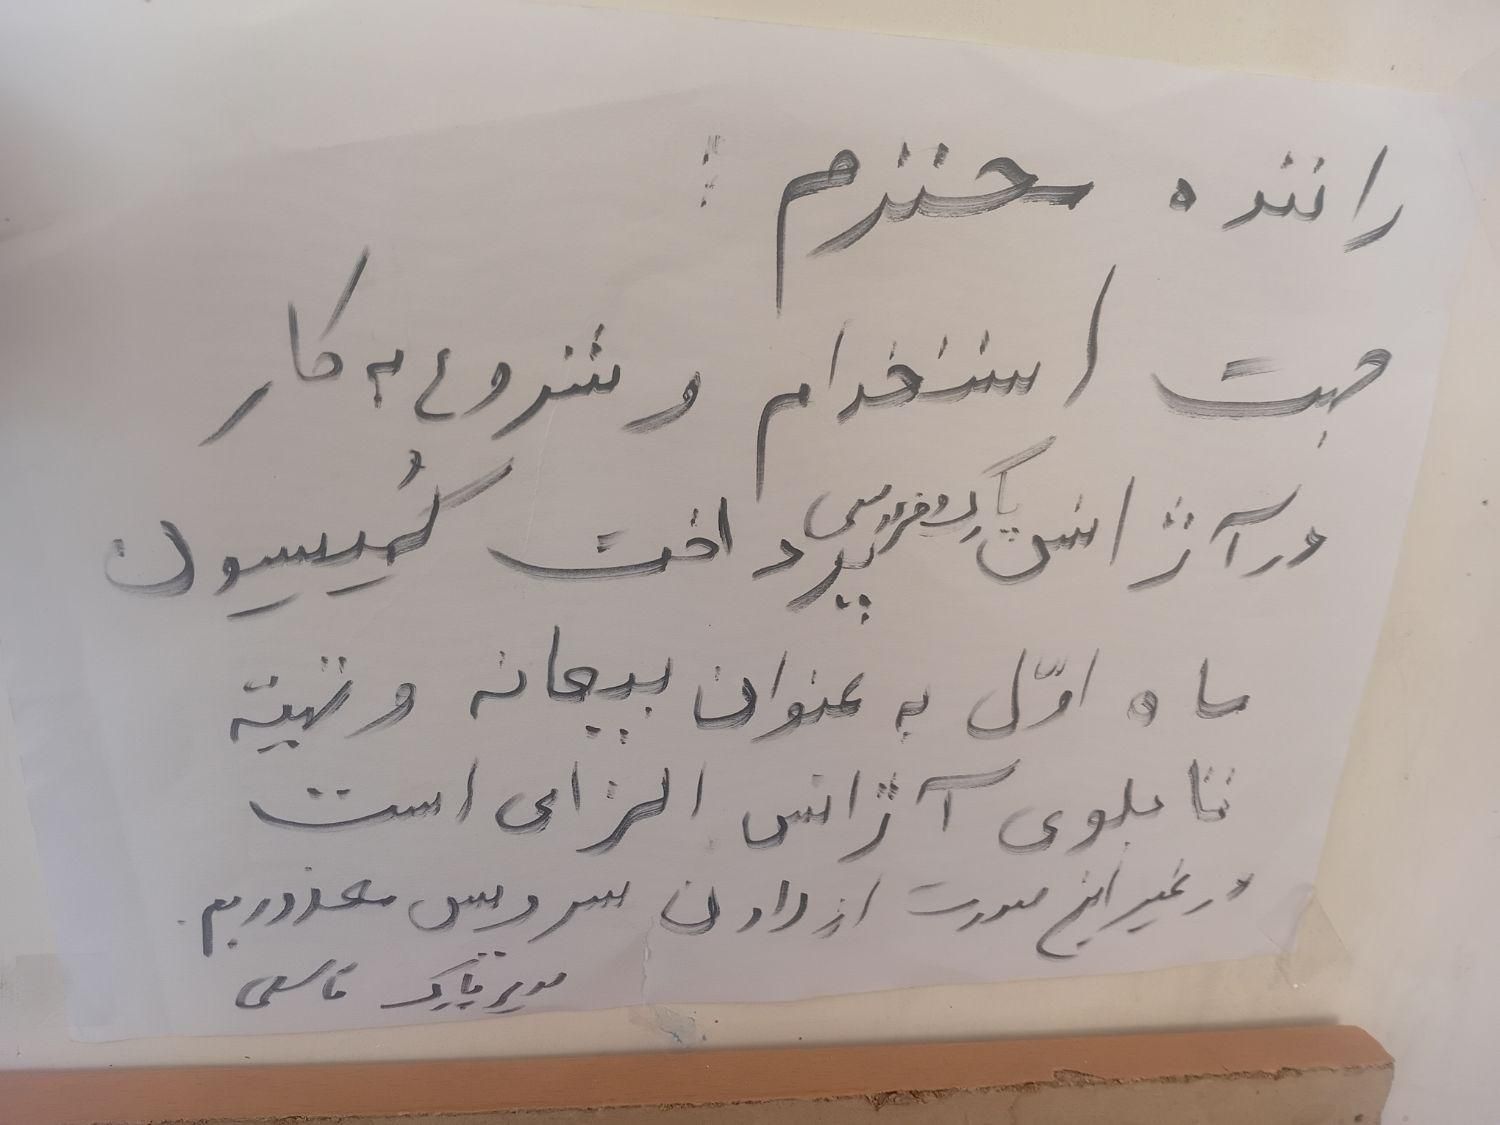 راننده محترم :
جهت استخدام و شروع به کار
در آژانس پارک و فردوسی پرداخت کُمیسیون
ماه اوّل به عنوان بیعانه و تهیّه
تابلوی آژانس الزامی است
در غیر این صورت از دادن سرویس معذوریم.
مدیر پارک قاسمی